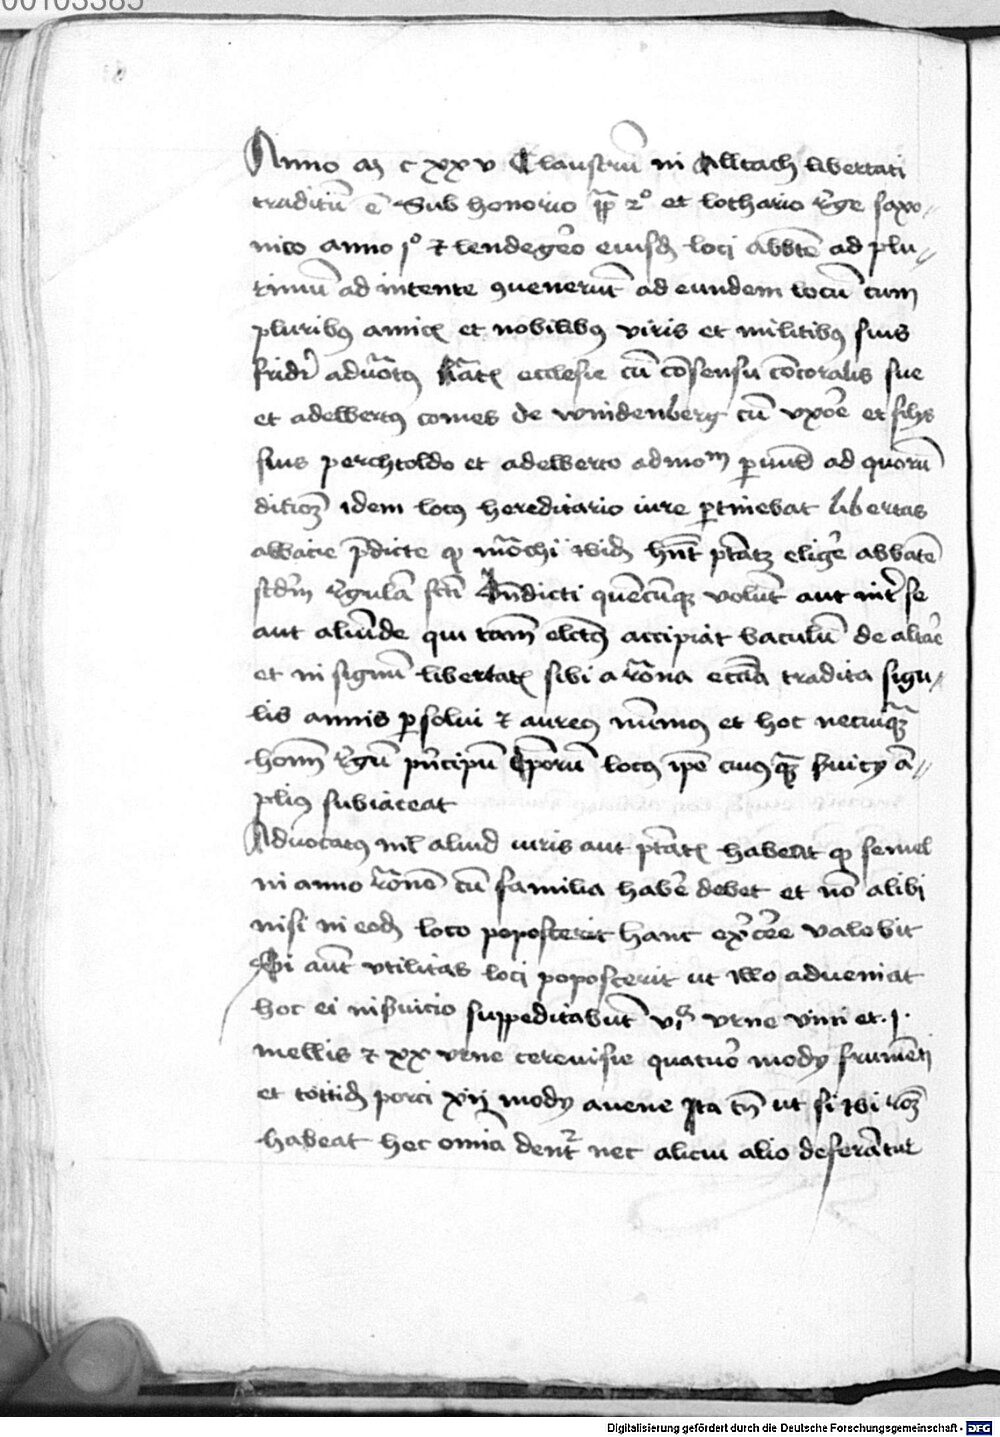 00103385
Anno M c xx v Claustrū in Alltach libertati
traditū ē Sub honorio pp 2º et lothario rege saxo-
nico anno jº et lendegero eiusdē loci abbate ad plu-
rimū ad intente 9veneriūt ad eundem locū cum
pluribꝰ amicis et nobilibꝰ viris et militibꝰ suis
fridr̄ advocatꝰ ecclesie cū cōsensu cōtoralis sue
et adelbertꝰ comes de windenberg cū vxōe et filijs
suis perchtoldo et adelberto ad quorū
idem locꝰ hereditario iure ptinebat libertas
abbacie pdicte qd mōchi ibidē hn̄t ptātē eligē abbatē
scdm regulā scti Bn̄dicti quēcūqꝫ volūt aut int se
aut aliūde qui tam̄ elctꝰ accipiāt baculū de altāe
et in signū libertatis sibi a rōna eccīa tradita sigu-
lis annis psolui t aureꝰ nūmꝰ et hoc
homī regū pncipū locꝰ ipe ā-
pliꝰ subiaceat
Advocatꝰ nil aliud iuris aut ptātis habeat qd semel
in anno cū familia habē debet et nō alibi
nisi in eodē loco poposcerit hanc exercēe valebit
Si aūt vtilitas loci poposcerit ut illo adveniat
hoc ei in suicio suppeditabūt vj urne vini et .j.
mellis t xx vrne cereuisie quatuor mody frumēti
et totidē porci xij mody avene Ita tn̄ ut si ibi
habeat hec omīa dent nec alicui alio deferātur
Digitalisierung gefördert durch die Deutsche Forschungsgemeinschaft - DFG